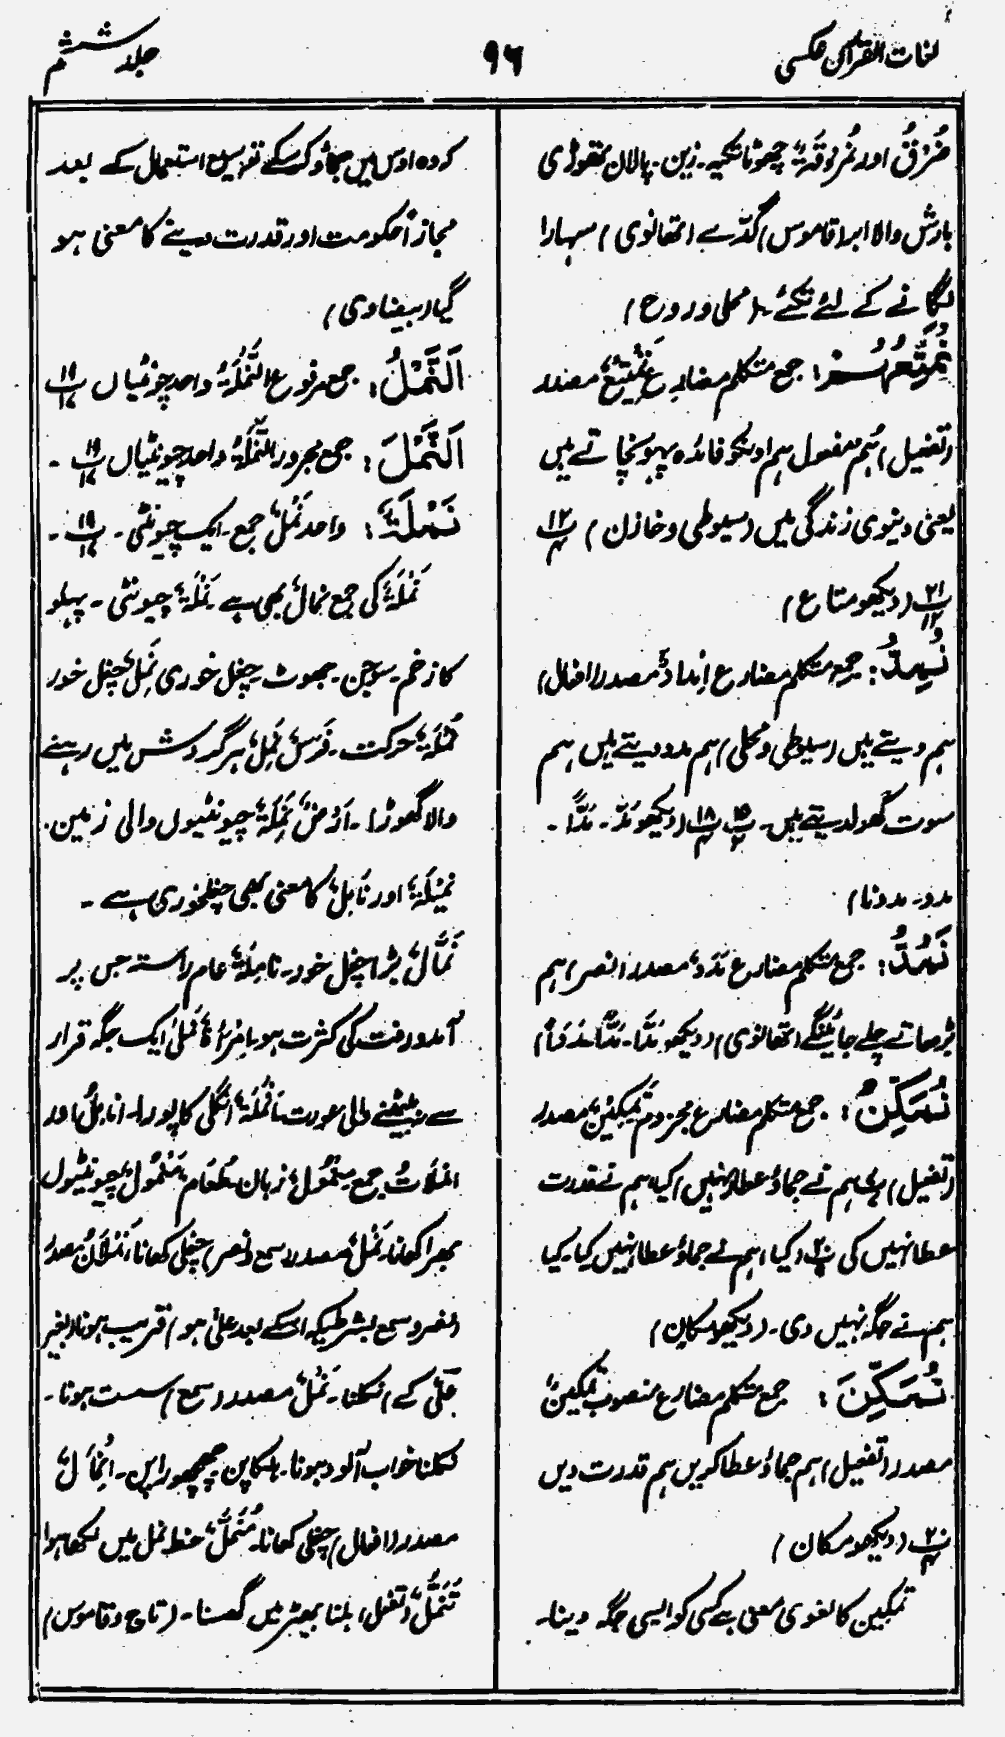 لغات القرآن عکسی
۹۶
جلد ششم
نُمْرُقٌ اور نُمْرُوقَةٌ چھوٹا تکیہ۔ زین۔ پالان تھوڑی
بارش والا ابر (قاموس) گدّے (تھانوی) سہارا
لگانے کے لئے تکئے۔ (محلی و روح)
نُمَتِّعُهُمْ: جمع متکلم مضارع تَمْتِيْعٌ مصدر
(تفعیل) هُمْ مفعول ہم اونکو فائدہ پہونچاتے ہیں
یعنی دنیوی زندگی میں (سیوطی و خازن)
(دیکھو متاع)
نُمِدُّ: جمع متکلم مضارع اِمْدَادٌ مصدر (افعال)
ہم دیتے ہیں (سیوطی و محلی) ہم مدد دیتے ہیں ہم
سوت گھولدیتے ہیں۔ (دیکھو مَدَّ۔ مَدًّا۔
مدد۔ مددنا)
نَمُدُّ: جمع متکلم مضارع مَدٌّ مصدر (نصر) ہم
بڑھاتے چلے جائینگے (تھانوی) (دیکھو مَدَّ۔ مَدًّا۔
نُمَكِّنْ: جمع متکلم مضارع مجزوم تَمْكِيْنٌ مصدر
(تفعیل) ہم نے جماؤ عطا نہیں کیا ہم نے قدرت
عطا نہیں کی (کیا) ہم نے جماؤ عطا نہیں کیا۔ کیا
ہم نے جگہ نہیں دی۔ (دیکھو مکان)
نُمَكِّنَ: جمع متکلم مضارع منصوب تَمْكِيْنٌ
مصدر (تفعیل) ہم جماؤ عطا کریں ہم قدرت دیں
(دیکھو مکان)
تمکین کا لغوی معنی ہے کسی کو ایسی جگہ دینا۔
کہ وہ اوس میں جماؤ کر سکے توسیع استعمال کے بعد
مجازاً حکومت اور قدرت دینے کا معنی ہو
گیا (بیضاوی)
اَلنَّمْلُ: جمع مرفوع اَلنَّمْلَةُ واحد چونٹیاں ۱۹/۱۷
اَلنَّمْلِ: جمع مجرور اَلنَّمْلَةُ واحد چونٹیاں ۱۹/۱۷۔
نَمْلَةٌ: واحد نَمْلٌ جمع۔ ایک چونٹی۔ ۱۹/۱۷۔
نَمْلَةٌ کی جمع نمال بھی ہے نَمْلَةٌ چیونٹی۔ پہلو
کا زخم۔ سوجن۔ جھوٹ۔ چغل خوری نَمِلٌ چغل خور
نُمْلَةٌ حرکت۔ فَرَسٌ نَمِلٌ ہر گردش میں رہنے
والا گھوڑا۔ اَرْضٌ نَمِلَةٌ چیونٹیوں والی زمین۔
نَمِيْلَةٌ اور نَامِلٌ کا معنی بھی چغلخوری ہے۔
نَمَّالٌ بڑا چغل خور۔ نَامِلَةٌ عام راستہ جس پر
آمدورفت کی کثرت ہو۔ اِمْرَأَةٌ نَمْلٰی ایک جگہ قرار
سے نہ بیٹھنے والی عورت اَنْمُلَةٌ انگلی کا پورا۔ انامل اور
انملات جمع۔ نَمِلٌ زبان۔ طَعَامٌ مَنْمُوْلٌ چیونٹیوں
بھرا کھانا۔ نَمْلٌ مصدر (سمع و نصر) چغلی کھانا۔ مصدر
(نصر و سمع بشرطیکہ اسکے بعد علیٰ ہو) قریب ہونا (بغیر
علیٰ کے) نکلنا۔ نَمْلٌ مصدر (سمع) سست ہونا۔
نکلنا خواب آلود ہونا۔ ہلکاپن۔ چھچھوراپن۔ اِنْمَالٌ
مصدر (افعال) چغلی کھانا۔ مُنَمَّلٌ خط نمل میں لکھا ہوا
تَنَمُّلٌ (تفعل) ہلنا بھیڑ میں گھسنا۔ (تاج و قاموس)